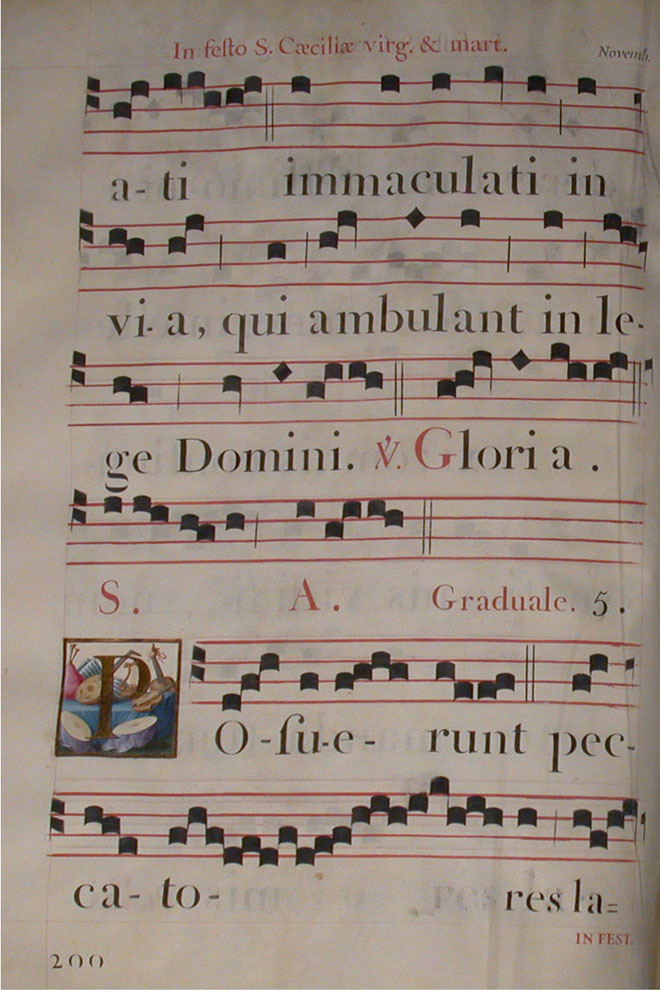 In festo S. Cæciliæ virg. & mart.
Novemb.
a- ti immaculati in
vi- a, qui ambulant in le-
ge Domini. ℣. Gloria.
S. A. Graduale. 5.
PO-ſu-e- runt pec-
ca- to- res la=
IN FEST.
200